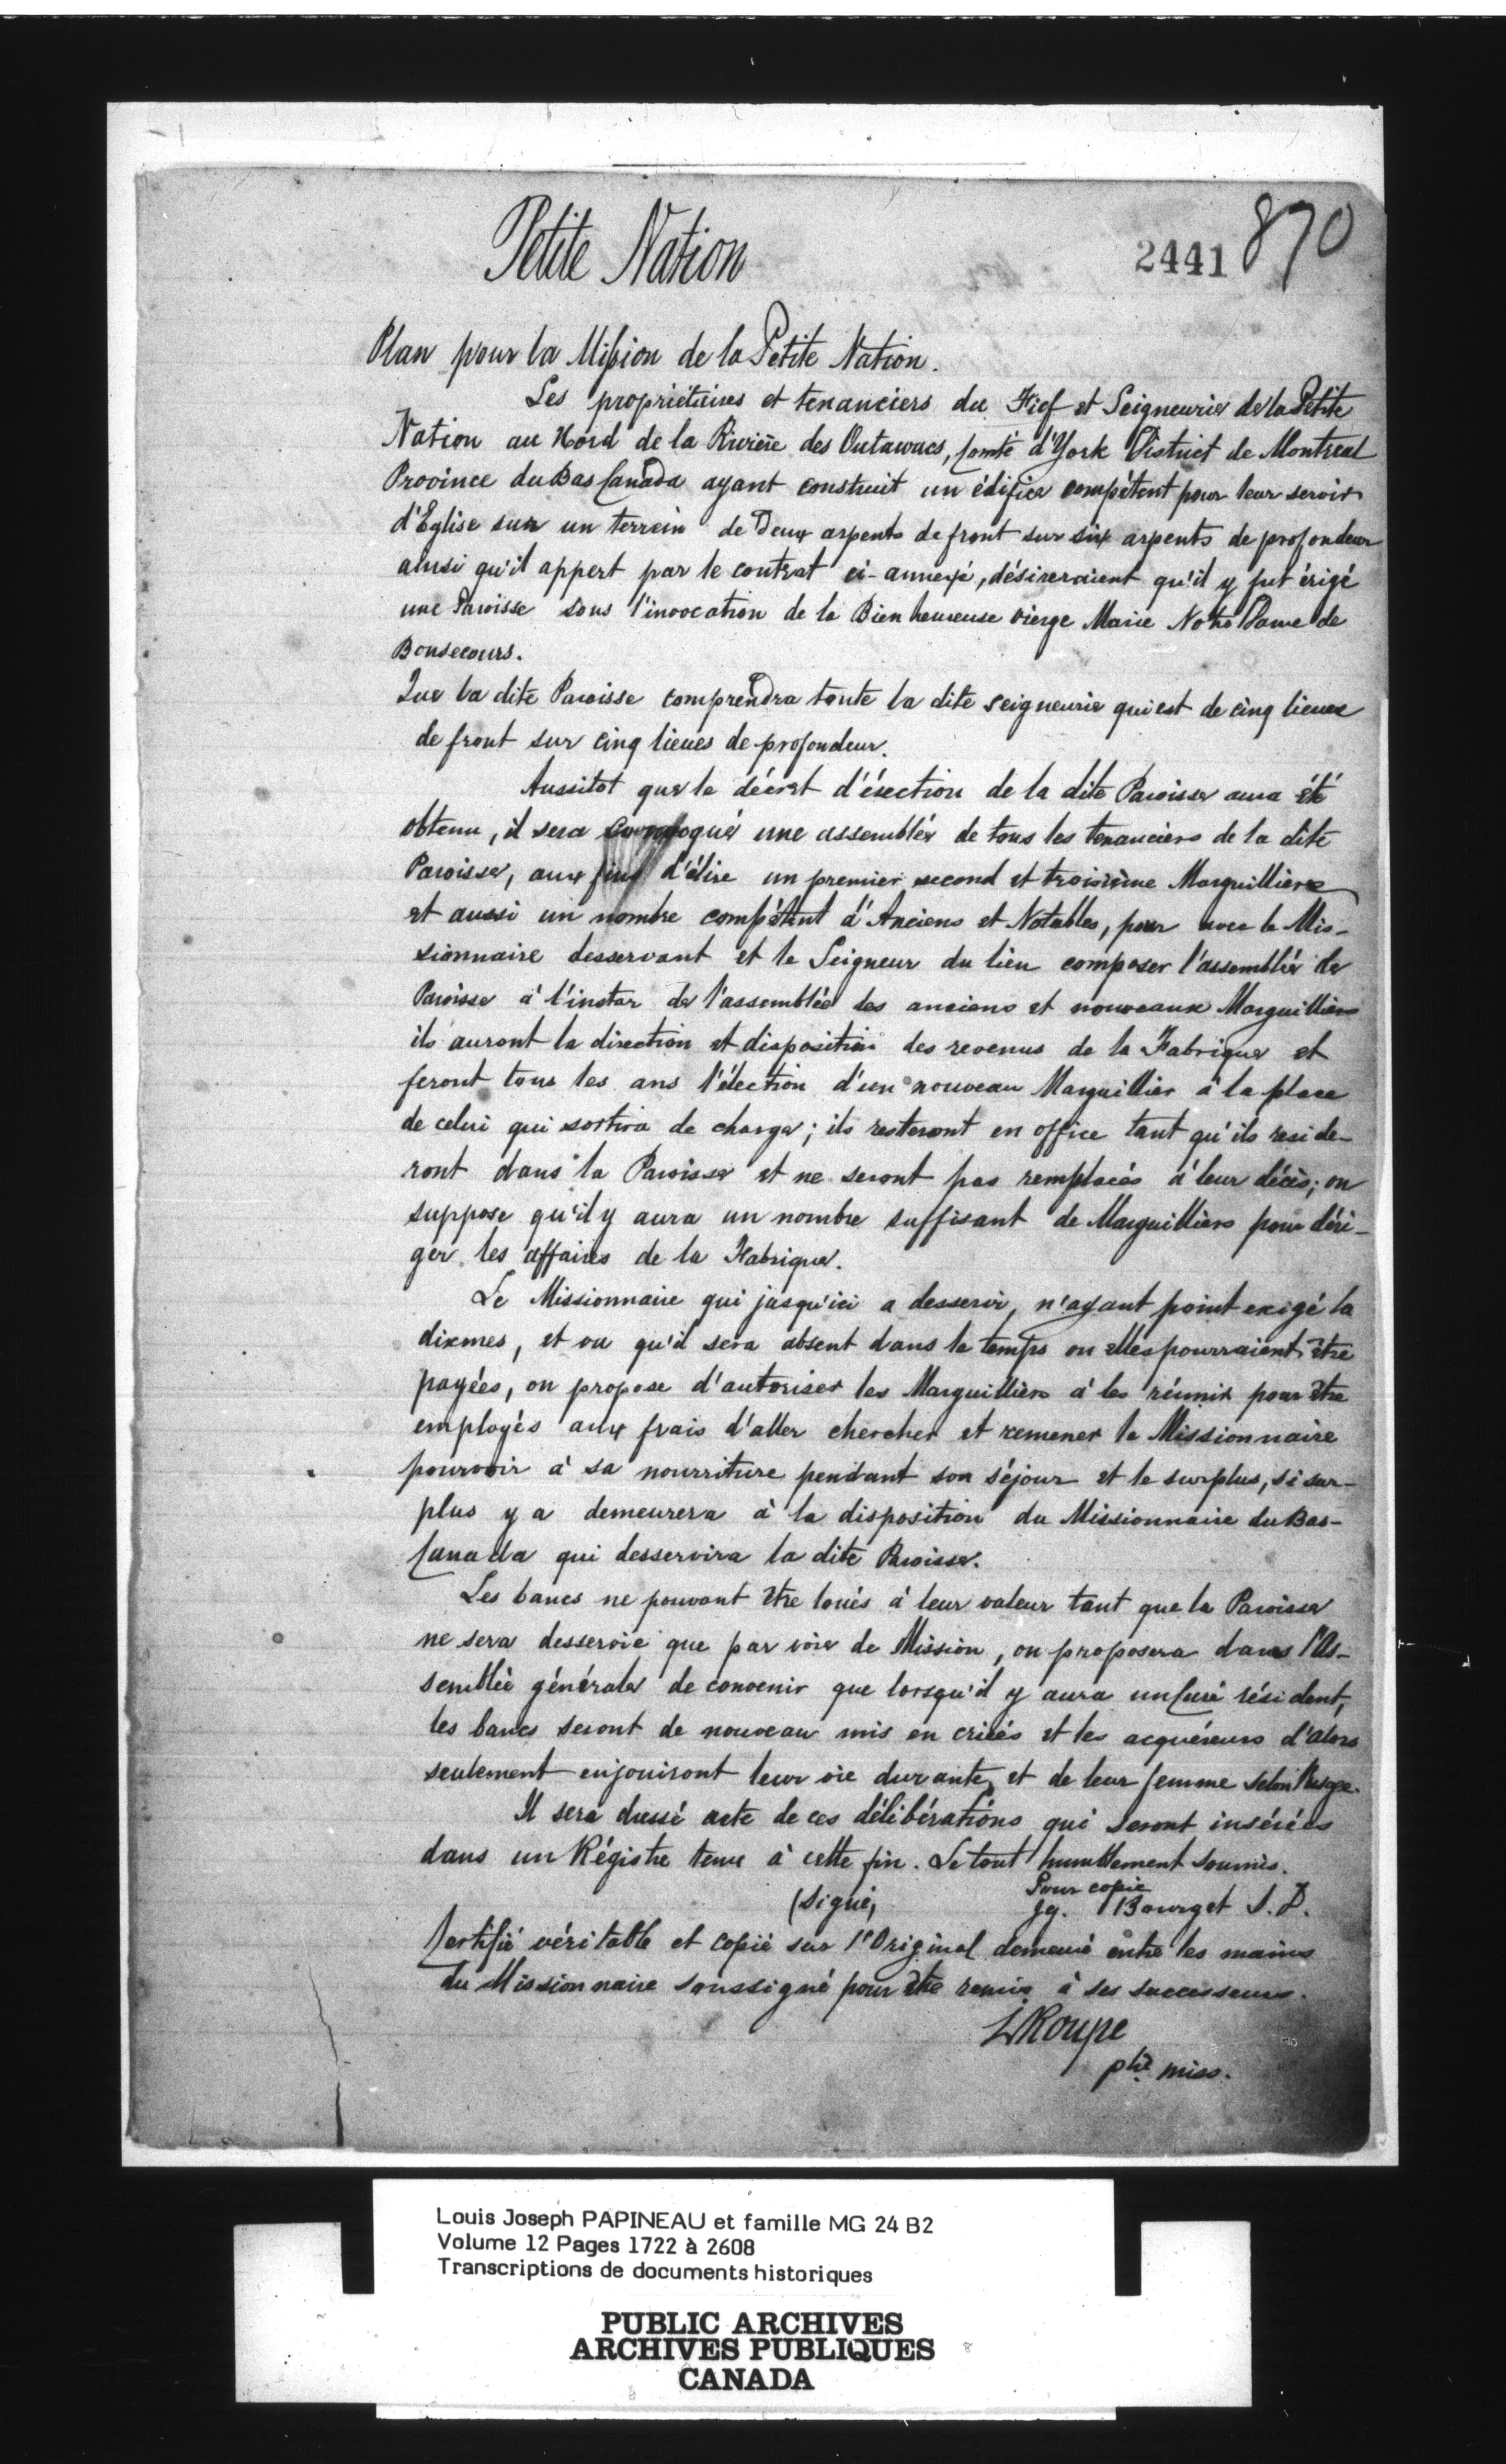 Petite Nation
2441 870
Plan pour la Mission de la Petite Nation.
Les propriétaires et tenanciers du Fief et Seigneurie de la Petite
Nation au Nord de la Rivière des Outawacs, Comté d'York District de Montreal
Province du Bas Canada ayant construit un édifice compétent pour leur servir
d'Eglise sur un terrein de deux arpents de front sur six arpents de profondeur
ainsi qu'il appert par le contrat ci-annexé, désireraient qu'il y fut érigé
une Paroisse sous l'invocation de la Bien heureuse vierge Marie Notre Dame de
Bonsecours.
Que la dite Paroisse comprendra toute la dite seigneurie qui est de cinq lieues
de front sur cinq lieues de profondeur.
Aussitot que le décret d'érection de la dite Paroisse aura été
obtenu, il sera convoqué une assemblée de tous les tenanciers de la dite
Paroisse, aux fins d'élire un premier second et troisième Marguilliers
et aussi un nombre compétent d'Anciens et Notables, pour avec le Mis-
sionnaire desservant et le Seigneur du lieu composer l'assemblée de
Paroisse à l'instar de l'assemblée des anciens et nouveaux Marguilliers
ils auront la direction et disposition des revenus de la Fabrique et
feront tous les ans l'élection d'un nouveau Marguillier à la place
de celui qui sortira de charge; ils resteront en office tant qu'ils reside-
ront dans la Paroisse et ne seront pas remplacés à leur décès; on
suppose qu'il y aura un nombre suffisant de Marguilliers pour déri-
ger les affaires de la Fabrique.
Le Missionnaire qui jusqu'ici a desservi, n'ayant point exigé la
dixmes, et vu qu'il sera absent dans le temps ou elles pourraient être
payées, on propose d'autoriser les Marguilliers à les réunir pour être
employés aux frais d'aller chercher et remener le Missionnaire
pourvoir à sa nourriture pendant son séjour et le surplus, si sur-
plus y a demeurera à la disposition du Missionnaire du Bas-
Canada qui desservira la dite Paroisse.
Les bancs ne pouvant être loués à leur valeur tant que la Paroisse
ne sera desservie que par voie de Mission, on proposera dans l'As-
semblée générale de convenir que lorsqu'il y aura un Curé résident,
les bancs seront de nouveau mis en criées et les acquéreurs d'alors
seulement en jouiront leur vie durante, et de leur femme selon l'usage.
Il sera dressé acte de ces délibérations qui seront insérées
dans un Régistre tenu à cette fin. Le tout humblement soumis.
Pour copie
(Signé, Ig. Bourget S.D.
Certifié véritable et copié sur l'Original demeuré entre les mains
du Missionnaire soussigné pour être remis à ses successeurs.
L Roupe
ptre miss.
Louis Joseph PAPINEAU et famille MG 24 B2
Volume 12 Pages 1722 à 2608
Transcriptions de documents historiques
PUBLIC ARCHIVES
ARCHIVES PUBLIQUES
CANADA